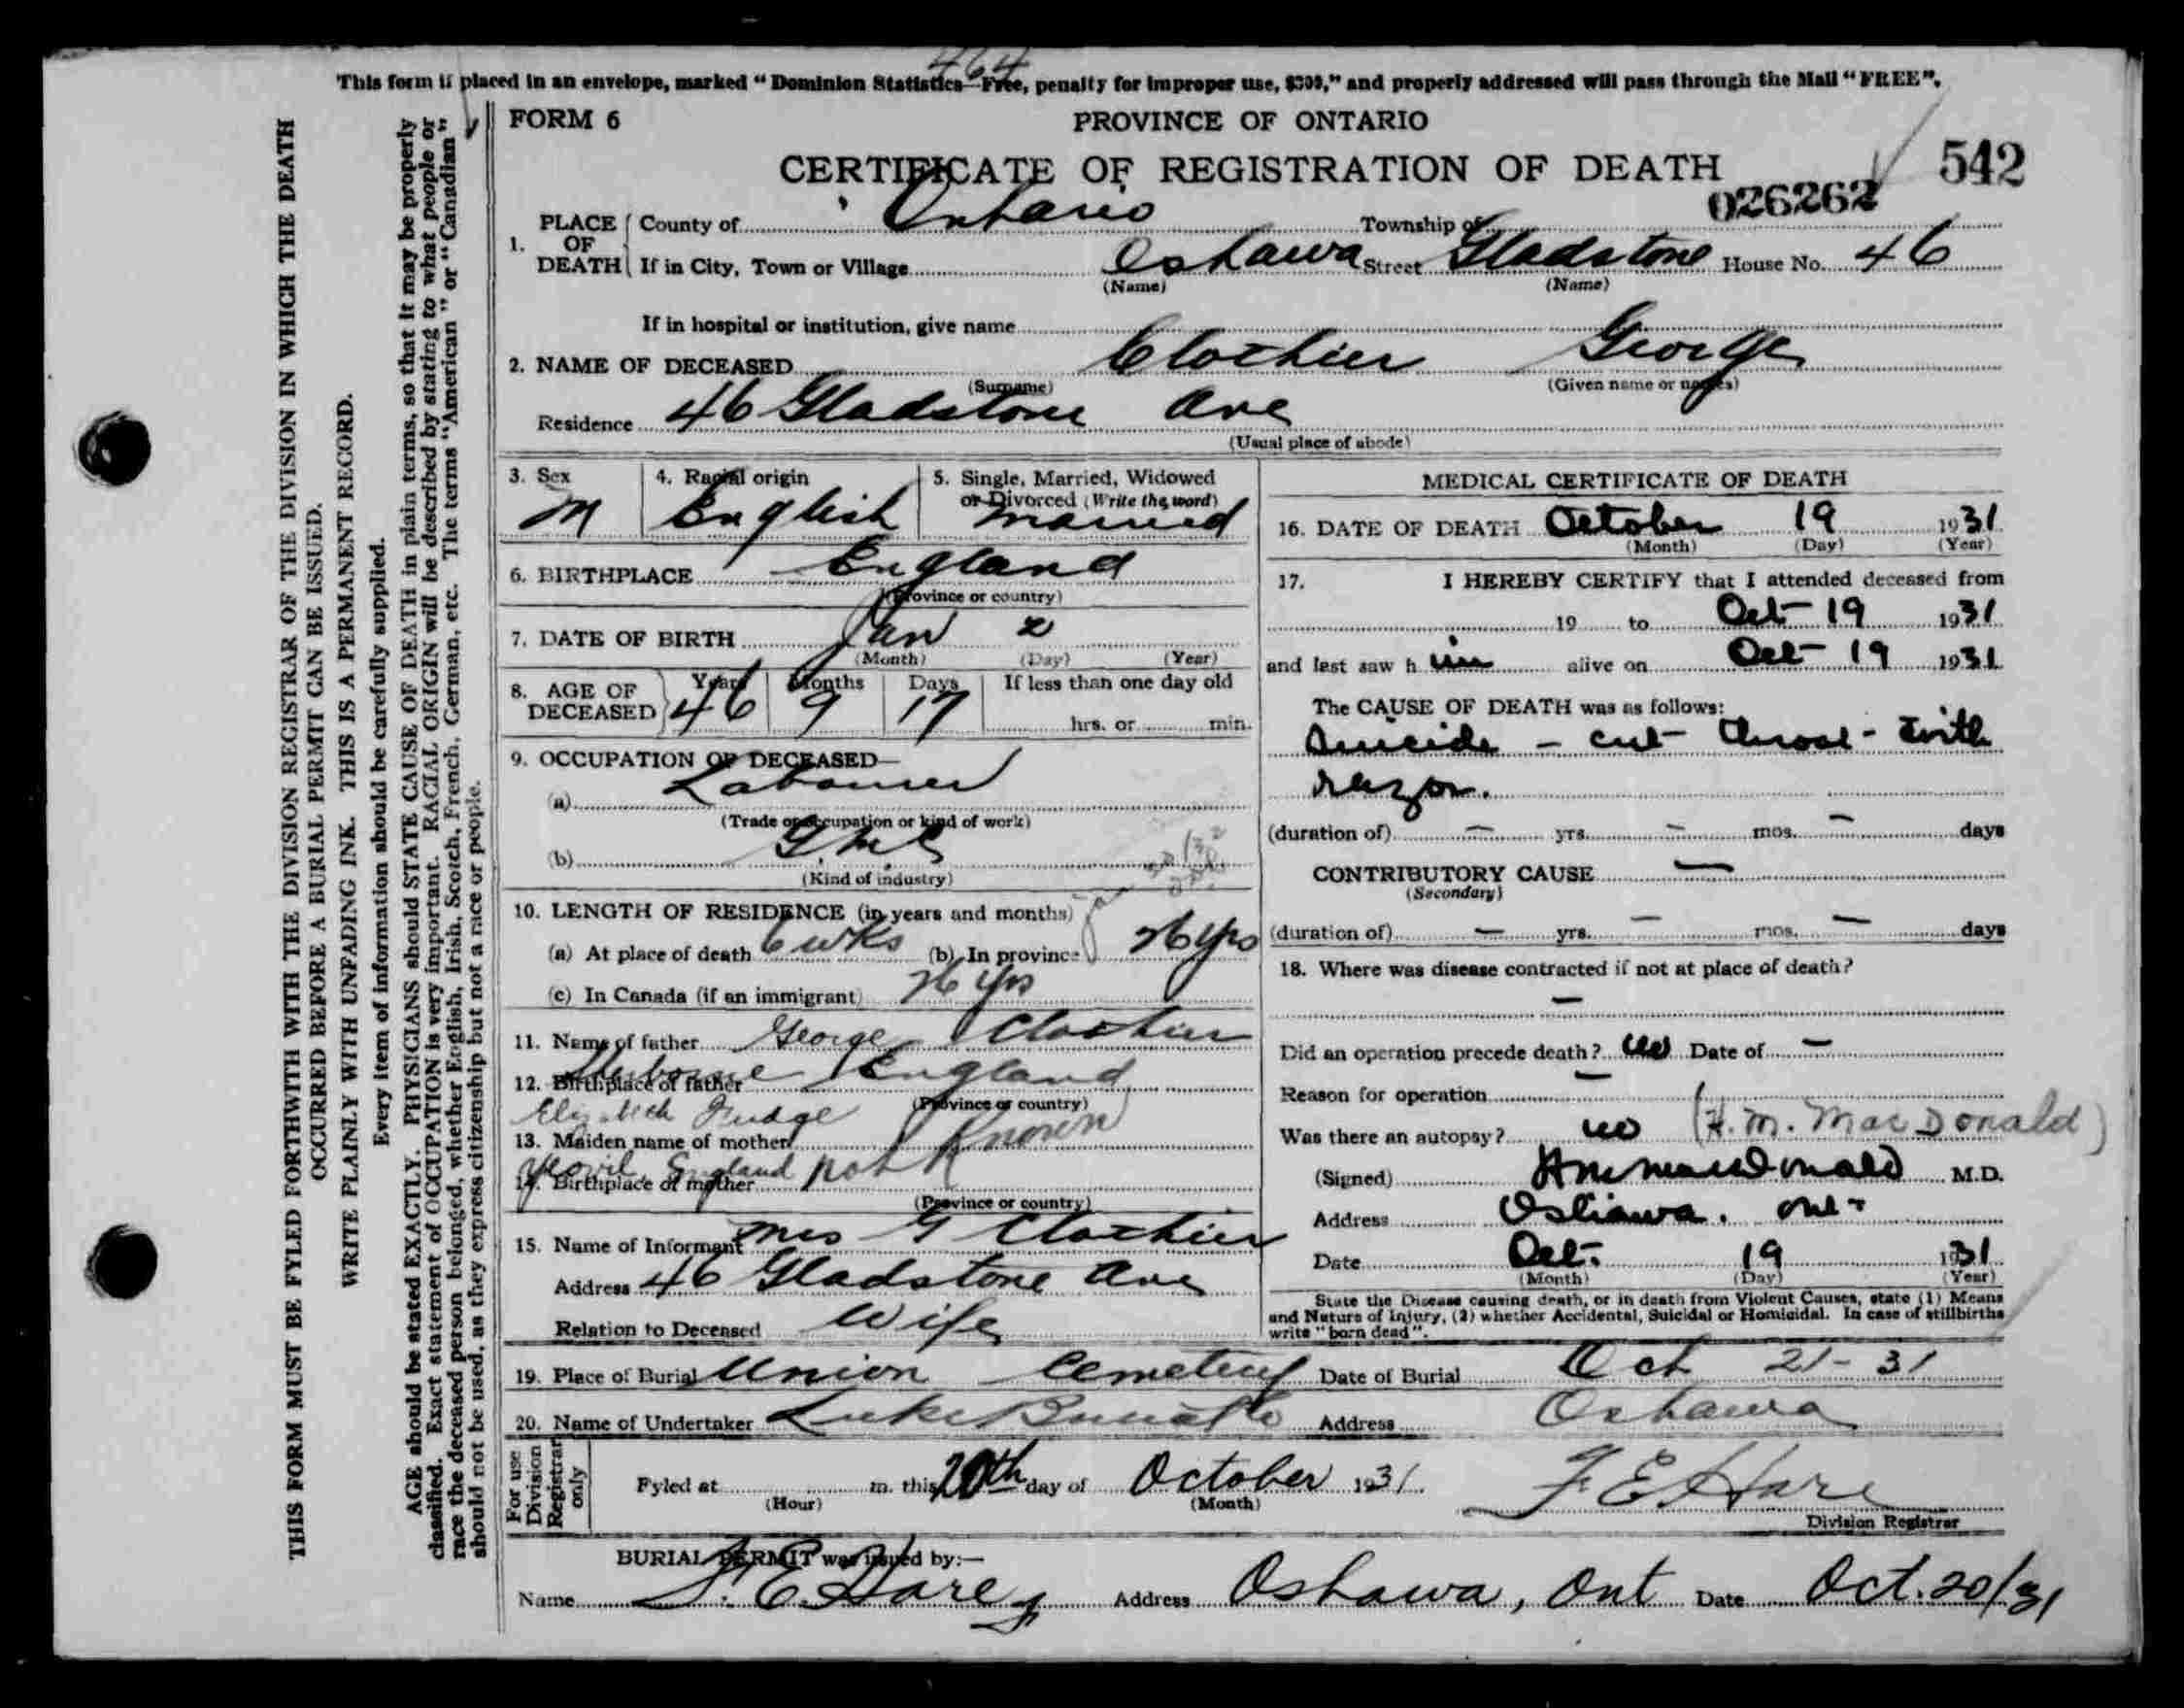 464
This form if placed in an envelope, marked "Dominion Statistics—Free, penalty for improper use, $300," and properly addressed will pass through the Mail "FREE".
THIS FORM MUST BE FYLED FORTHWITH WITH THE DIVISION REGISTRAR OF THE DIVISION IN WHICH THE DEATH
OCCURRED BEFORE A BURIAL PERMIT CAN BE ISSUED.
WRITE PLAINLY WITH UNFADING INK. THIS IS A PERMANENT RECORD.
Every item of information should be carefully supplied.
AGE should be stated EXACTLY. PHYSICIANS should STATE CAUSE OF DEATH in plain terms, so that it may be properly
classified. Exact statement of OCCUPATION is very important. RACIAL ORIGIN will be described by stating to what people or
race the deceased person belonged, whether English, Irish, Scotch, French, German, etc. The terms "American" or "Canadian"
should not be used, as they express citizenship but not a race or people.
FORM 6 PROVINCE OF ONTARIO
CERTIFICATE OF REGISTRATION OF DEATH 542
026262
1. PLACE OF DEATH County of Ontario Township of
If in City, Town or Village Oshawa Street Gladstone House No. 46
(Name) (Name)
If in hospital or institution, give name
2. NAME OF DECEASED Clothier George
(Surname) (Given name or names)
Residence 46 Gladstone Ave
(Usual place of abode)
3. Sex M 4. Racial origin English 5. Single, Married, Widowed or Divorced (Write the word) Married
6. BIRTHPLACE England
(Province or country)
7. DATE OF BIRTH Jan 2
(Month) (Day) (Year)
8. AGE OF DECEASED Years 46 Months 9 Days 17 If less than one day old
hrs. or min.
9. OCCUPATION OF DECEASED—
(a) Labourer
(Trade or occupation or kind of work)
(b) G.M.C
(Kind of industry)
10. LENGTH OF RESIDENCE (in years and months)
(a) At place of death 6 wks (b) In province 26 yrs
(c) In Canada (if an immigrant) 26 yrs
11. Name of father George Clothier
12. Birthplace of father Sherborne England
(Province or country)
Elizabeth Fudge
13. Maiden name of mother Known
Yeovil, England not
14. Birthplace of mother
(Province or country)
15. Name of Informant Mrs G Clothier
Address 46 Gladstone Ave
Relation to Deceased Wife
MEDICAL CERTIFICATE OF DEATH
16. DATE OF DEATH October 19 1931
(Month) (Day) (Year)
17. I HEREBY CERTIFY that I attended deceased from
19 to Oct 19 1931
and last saw him alive on Oct 19 1931
The CAUSE OF DEATH was as follows:
Suicide - cut throat - with
razor.
(duration of) — yrs. — mos. — days
CONTRIBUTORY CAUSE —
(Secondary)
(duration of) — yrs. — mos. — days
18. Where was disease contracted if not at place of death?
—
Did an operation precede death? no Date of —
Reason for operation —
Was there an autopsy? no (H.M. MacDonald)
(Signed) H M MacDonald M.D.
Address Oshawa. Ont.
Date Oct. 19 1931
(Month) (Day) (Year)
State the Disease causing death, or in death from Violent Causes, state (1) Means
and Nature of Injury, (2) whether Accidental, Suicidal or Homicidal. In case of stillbirths
write "born dead".
19. Place of Burial Union Cemetery Date of Burial Oct 21-31
20. Name of Undertaker Luke Address Oshawa
For use Division Registrar only
Fyled at m. this 20th day of October 1931.
(Hour) (Month)
F E Hare
Division Registrar
BURIAL PERMIT was issued by:—
Name F. E. Hare Address Oshawa, Ont Date Oct. 20/31